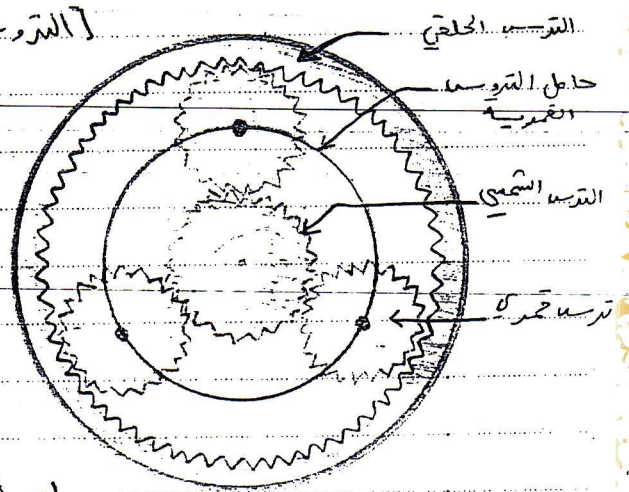 [التروس
الترس الحلقي
حامل التروس
القمرية
الترس الشمسي
ترس قمري